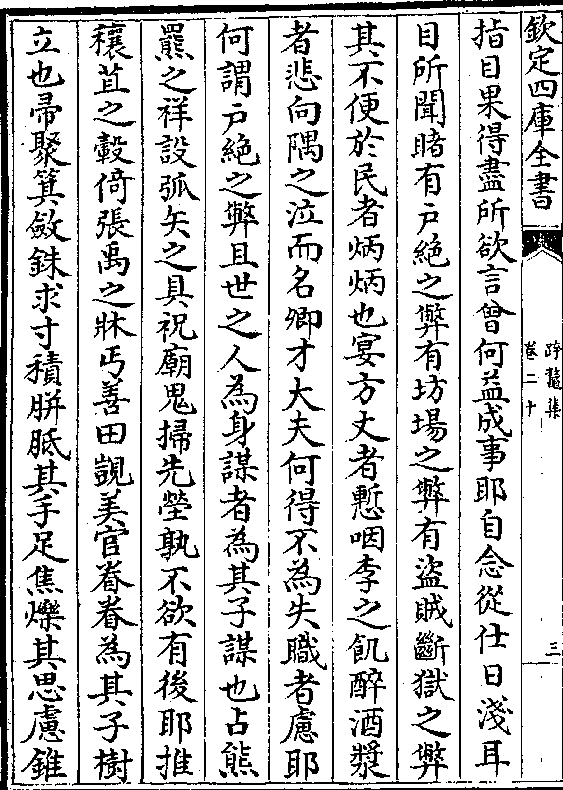 欽定四庫全書
跨鼇集
卷二十
三
指目果得盡所欲言曾何益成事耶自念從仕日淺耳
目所聞睹有戶絶之弊有坊場之弊有盜賊斷獄之弊
其不便於民者炳炳也宴方丈者慙咽李之飢醉酒漿
者悲向隅之泣而名卿才大夫何得不為失職者慮耶
何謂戶絶之弊且世之人為身謀者為其子謀也占熊
羆之祥設弧矢之具祝廟鬼掃先塋孰不欲有後耶推
穰苴之轂倚張禹之牀丐善田覬美官眷眷為其子樹
立也帚聚箕斂銖求寸積胼胝其手足焦爍其思慮錐